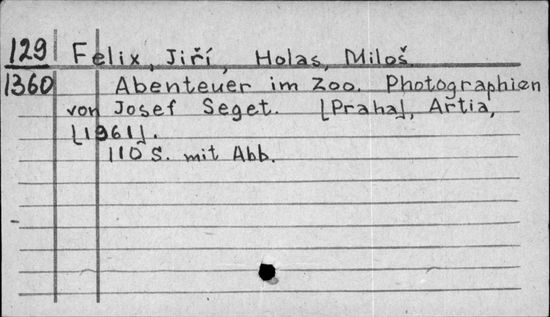 129 Felix, Jiří, Holas, Miloš
1360 Abenteuer im Zoo. Photographien
von Josef Seget. [Praha], Artia,
[1961].
110 S. mit Abb.